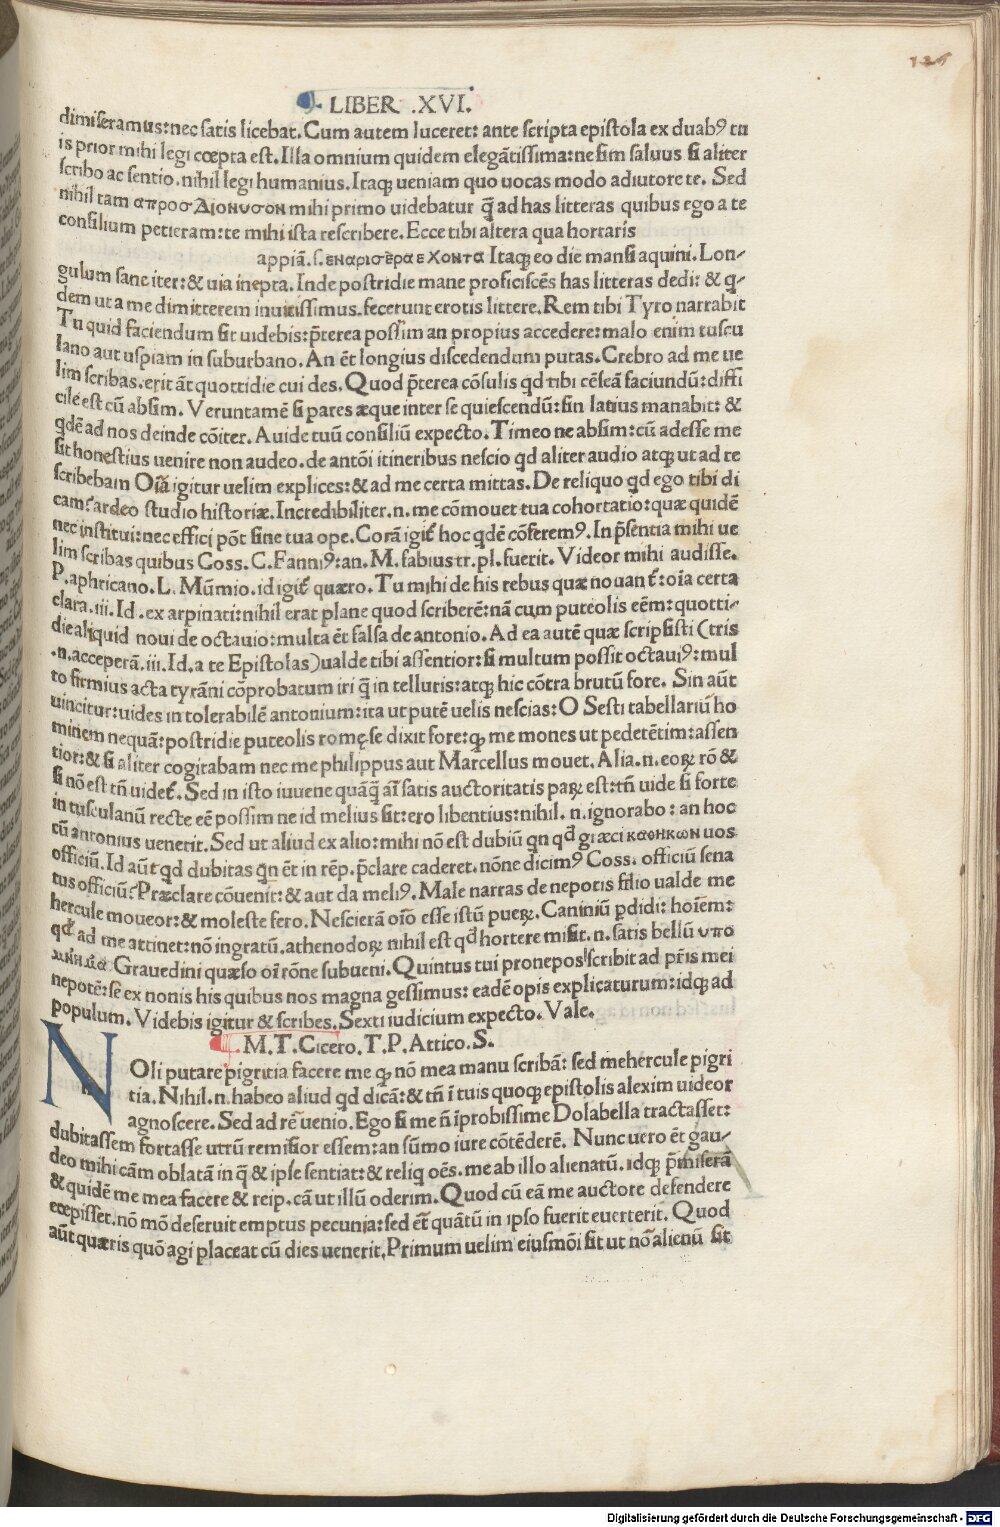 126
LIBER .XVI.
dimiseramus: nec satis licebat. Cum autem luceret: ante scripta epistola ex duabꝰ tu
is prior mihi legi cœpta est. Illa omnium quidem elegātissima: ne sim saluus si aliter
scribo ac sentio. nihil legi humanius. Itaqꝫ ueniam quo uocas modo adiutore te. Sed
nihil tam απροσ Διονυσον mihi primo uidebatur q̄ ad has litteras quibus ego a te
consilium petieram: te mihi ista rescribere. Ecce tibi altera qua hortaris
appiā. Itaqꝫ eo die mansi aquini. Lon-
gulum sane iter: & uia inepta. Inde postridie mane proficiscēs has litteras dedi: & q-
dem ut a me dimitterem inuitissimus. fecerunt erotis littere. Rem tibi Tyro narrabit
Tu quid faciendum sit uidebis: p̄terea possim an propius accedere: malo enim tuscu
lano aut uspiam in suburbano. An ēt longius discedendum putas. Crebro ad me ue
lim scribas. erit āt quottidie cui des. Quod p̄terea cōsulis qd tibi cēseā faciundū: diffi
cile est cū absim. Veruntamē si pares æque inter se quiescendū: sin latius manabit: &
qdē ad nos deinde cōiter. Auide tuū consiliū expecto. Timeo ne absim: cū adesse me
sit honestius uenire non audeo. de antōi itineribus nescio qd aliter audio atqꝫ ut ad te
scribebam Oīa igitur uelim explices: & ad me certa mittas. De reliquo qd ego tibi di
cam? ardeo studio historiæ. Incredibiliter .n. me cōmouet tua cohortatio: quæ quidē
nec institui: nec effici pōt sine tua ope. Corā igit̄ hoc qdē cōferemꝰ. In p̄sentia mihi ue
lim scribas quibus Coss. C. Fanniꝰ: an. M. fabius tr. pl. fuerit. Videor mihi audisse.
P. aphricano. L. Mūmio. id igit̄ quæro. Tu mihi de his rebus quæ nouant̄: oīa certa
clara .iii. Id. ex arpinati: nihil erat plane quod scriberē: nā cum puteolis eēm: quotti-
die aliquid noui de octauio: multa ēt falsa de antonio. Ad ea autē quæ scripsisti (tris
.n. acceperā .iii. Id. a te Epistolas) ualde tibi assentior: si multum possit octauiꝰ: mul
to firmius acta tyrāni cōprobatum iri q̄ in telluris: atqꝫ hic cōtra brutū fore. Sin aūt
uincitur: uides in tolerabilē antonium: ita ut putē uelis nescias: O Sesti tabellariū ho
minem nequā: postridie puteolis romę se dixit fore: qꝫ me mones ut pedetētim: assen
tior: & si aliter cogitabam nec me philippus aut Marcellus mouet. Alia .n. eoꝝ rō &
si nō est tn̄ uidet̄. Sed in isto iuuene quāq̄ aī satis auctoritatis paꝝ est: tn̄ uide si forte
in tusculanū recte eē possim ne id melius sit: ero libentius: nihil .n. ignorabo: an hoc
cū antonius uenerit. Sed ut aliud ex alio: mihi nō est dubiū qn qd græci καθηκων uos
officiū. Id aūt qd dubitas qn ēt in rēp. p̄clare caderet. nōne dicimꝰ Coss. officiū sena
tus officiū? Præclare cōuenit: & aut da meliꝰ. Male narras de nepotis filio ualde me
hercule moueor: & moleste fero. Nescierā oīo esse istū pueꝝ. Caniniū pdidi: hoīem:
qd ad me attinet: nō ingratū. athenodoꝝ nihil est qd hortere misit .n. satis bellū υπο
Grauedini quæso oī rōne subueni. Quintus tui pronepos scribit ad pr̄is mei
nepotē: se ex nonis his quibus nos magna gessimus: eadē opis explicaturum: idqꝫ ad
populum. Videbis igitur & scribes. Sexti iudicium expecto. Vale.
M. T. Cicero. T. P. Attico. S.
NOli putare pigritia facere me qꝫ nō mea manu scribā: sed mehercule pigri
tia. Nihil .n. habeo aliud qd dicā: & tn̄ ī tuis quoqꝫ epistolis alexim uideor
agnoscere. Sed ad rē uenio. Ego si me n̄ īprobissime Dolabella tractasset:
dubitassem fortasse utrū remissior essem: an sūmo iure cōtēderē. Nunc uero ēt gau-
deo mihi cām oblatā in q̄ & ipse sentiat: & reliq oēs. me ab illo alienatū. idqꝫ p̄miserā
& quidē me mea facere & reip. cā ut illū oderim. Quod cū eā me auctore defendere
cœpisset. nō mō deseruit emptus pecunia: sed ēt quātū in ipso fuerit euerterit. Quod
aūt quæris quō agi placeat cū dies uenerit. Primum uelim eiusmōi sit ut nō alienū sit
Digitalisierung gefördert durch die Deutsche Forschungsgemeinschaft - DFG